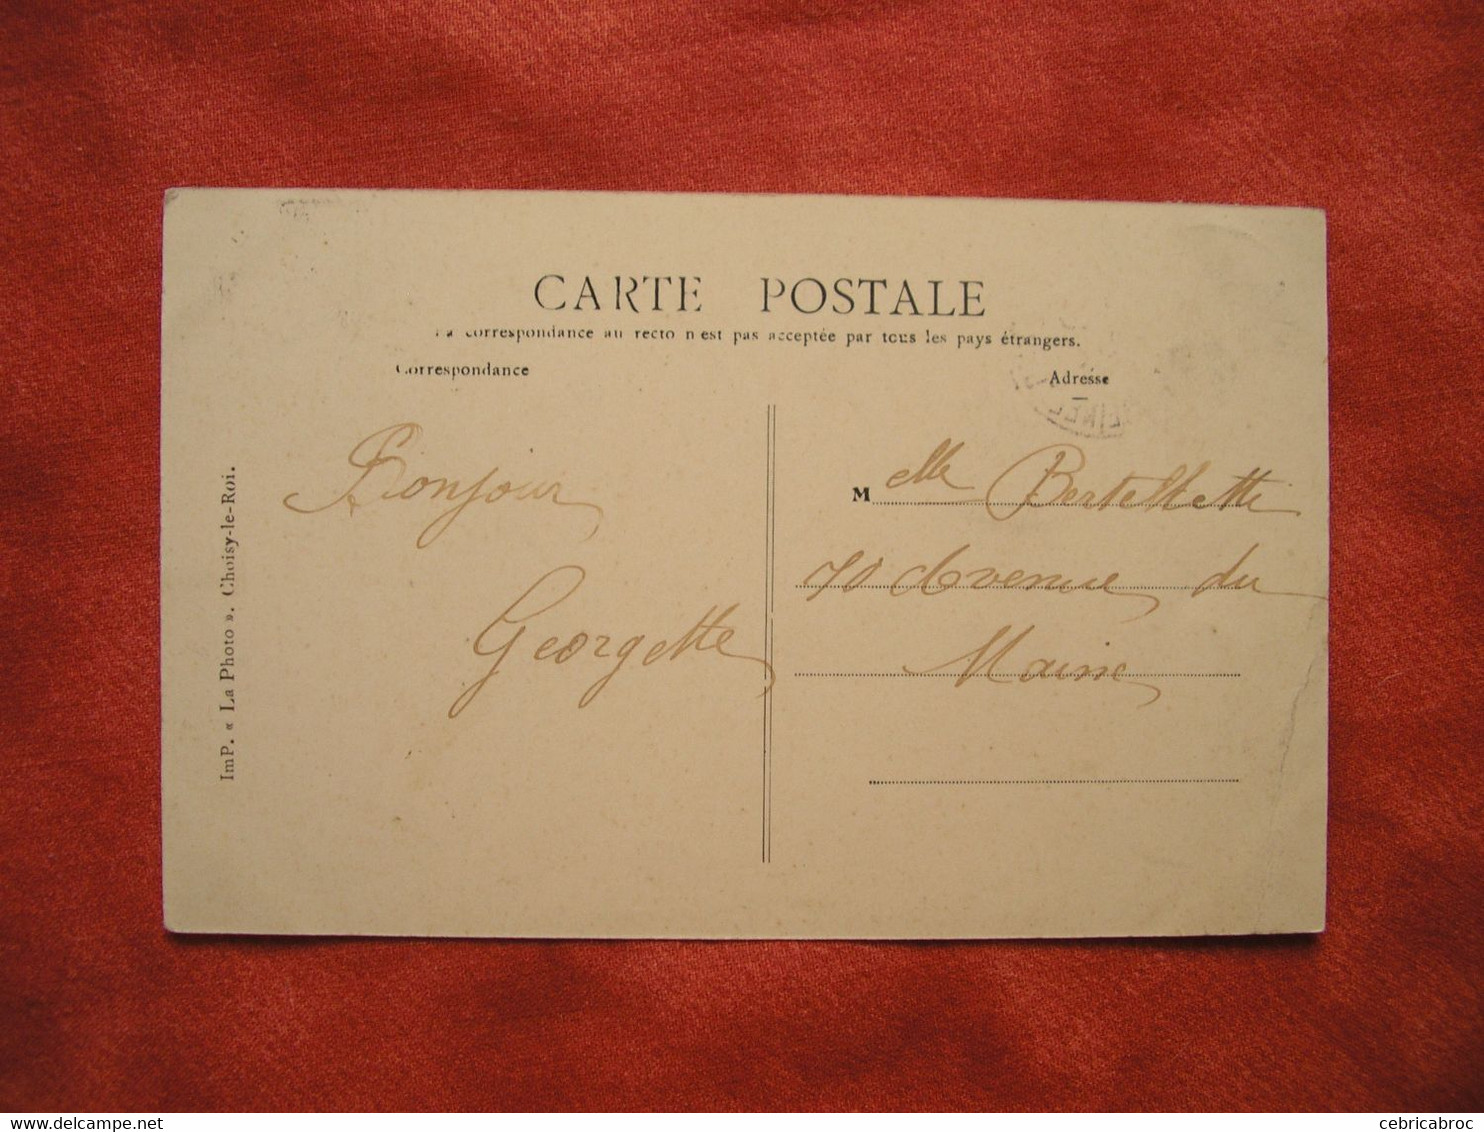 CARTE POSTALE
La correspondance au recto n'est pas acceptée par tous les pays étrangers.
Correspondance
Adresse
Bonjour
Georgette
Melle
70 Avenue du
Maine
ImP. « La Photo ». Choisy-le-Roi.
cebricabroc